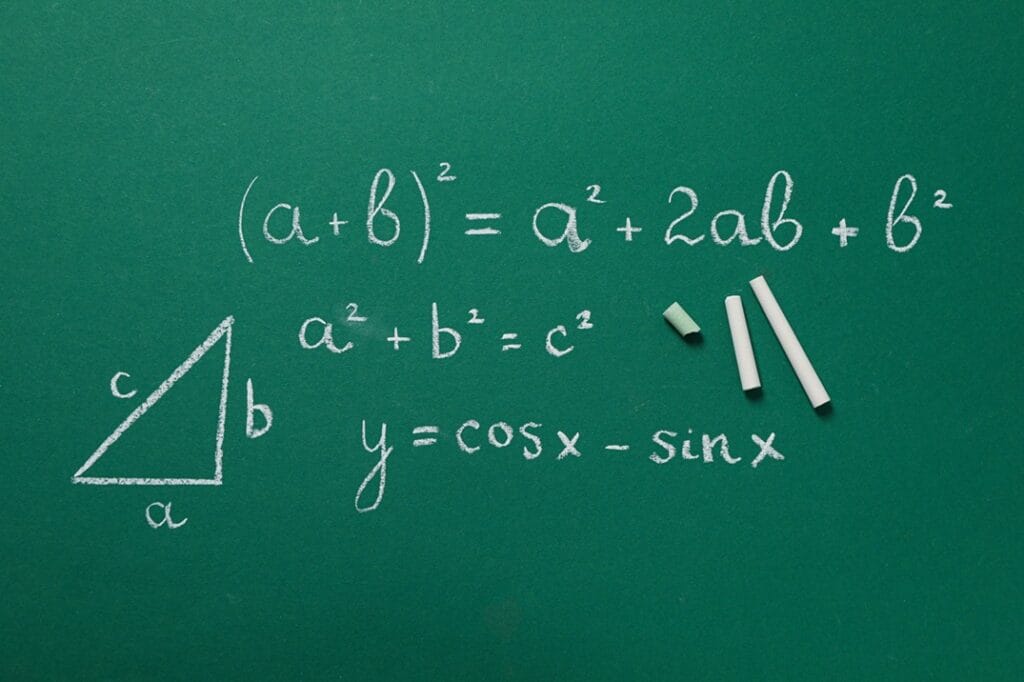 (a + b)² = a² + 2ab + b²
a² + b² = c²
c
b
a
y = cosx - sinx